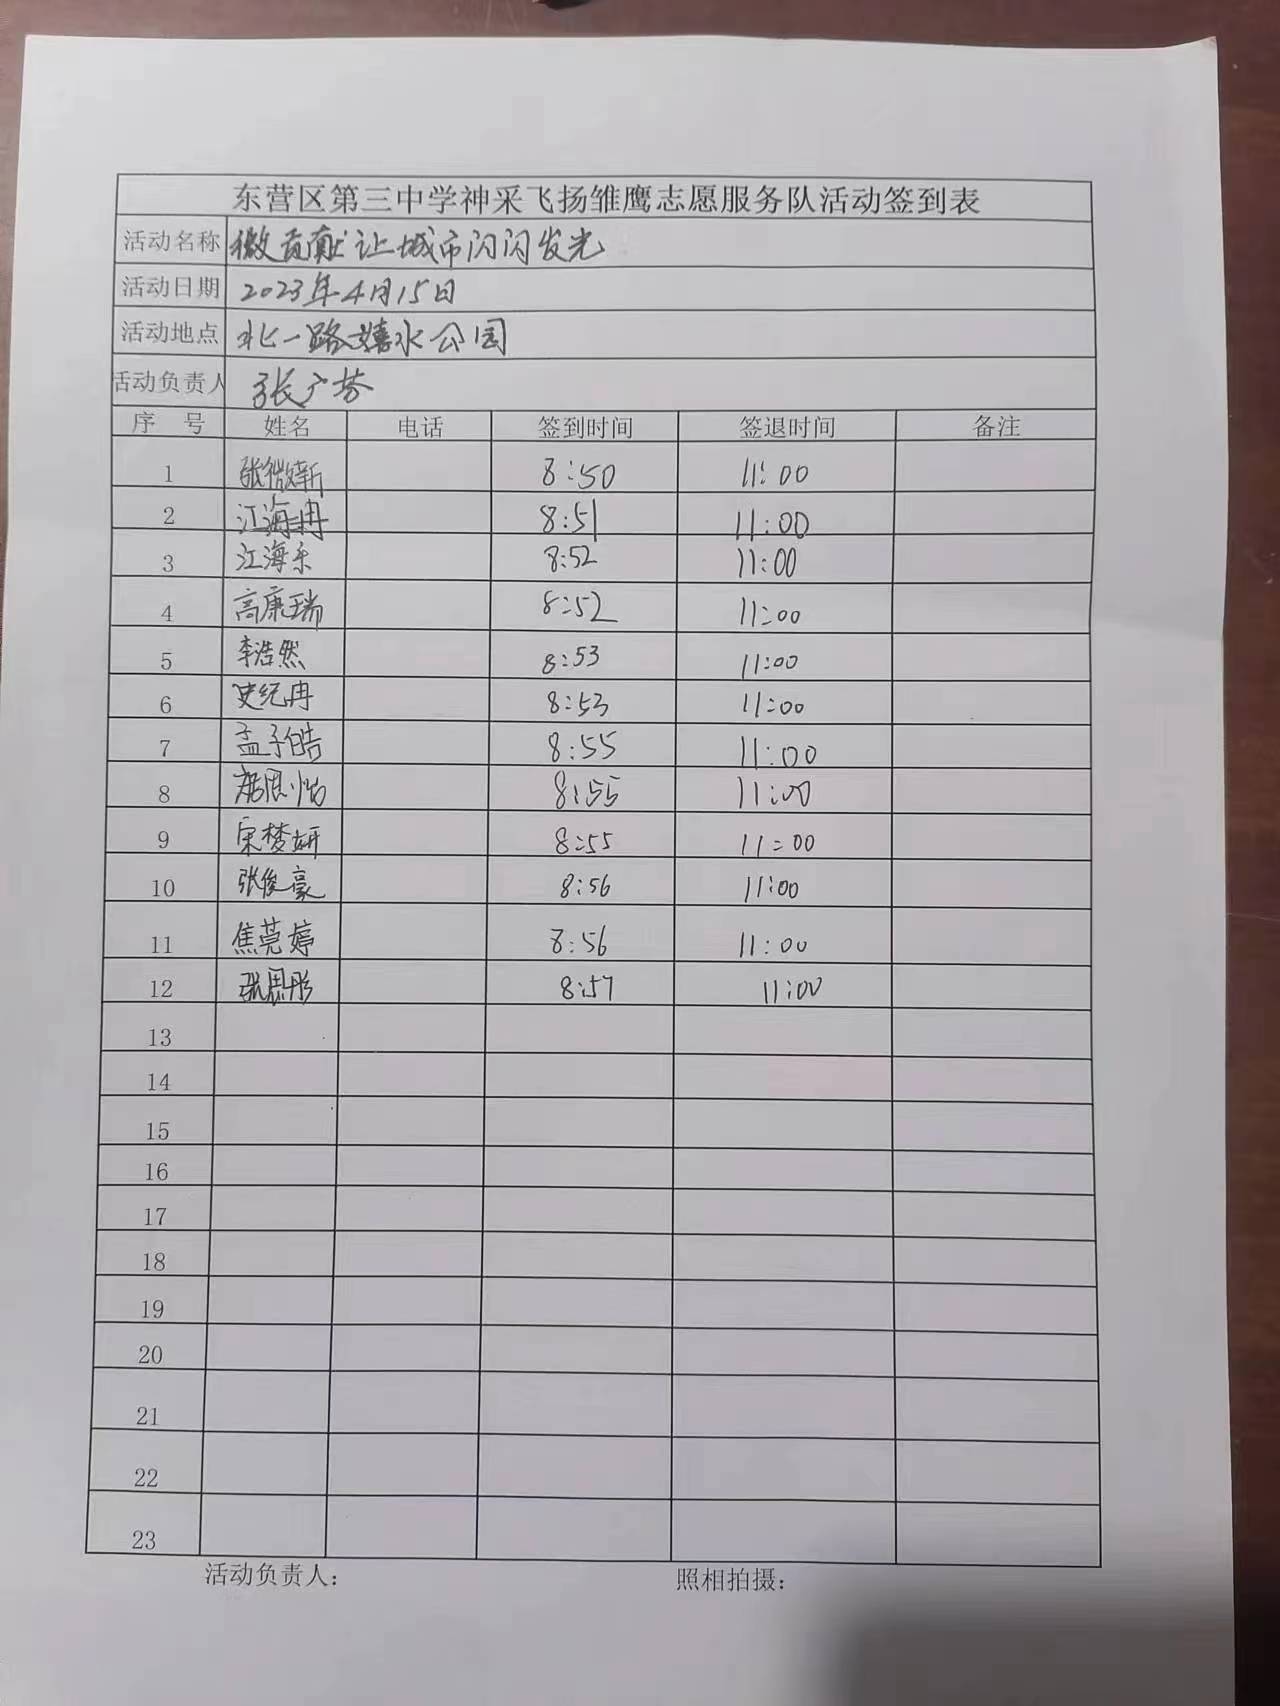 东营区第三中学神采飞扬雏鹰志愿服务队活动签到表
活动名称 微贡献 让城市闪闪发光
活动日期 2023年4月15日
活动地点 北一路嬉水公园
活动负责人 张广芬
序 号 姓名 电话 签到时间 签退时间 备注
1 8:50 11:00
2 江海冉 8:51 11:00
3 江海乐 8:52 11:00
4 高康瑞 8:52 11:00
5 李浩然 8:53 11:00
6 史纪冉 8:53 11:00
7 孟子皓 8:55 11:00
8 8:55 11:00
9 宋梦妍 8:55 11:00
10 张俊豪 8:56 11:00
11 焦莞婷 8:56 11:00
12 张思彤 8:57 11:00
13
14
15
16
17
18
19
20
21
22
23
活动负责人: 照相拍摄: